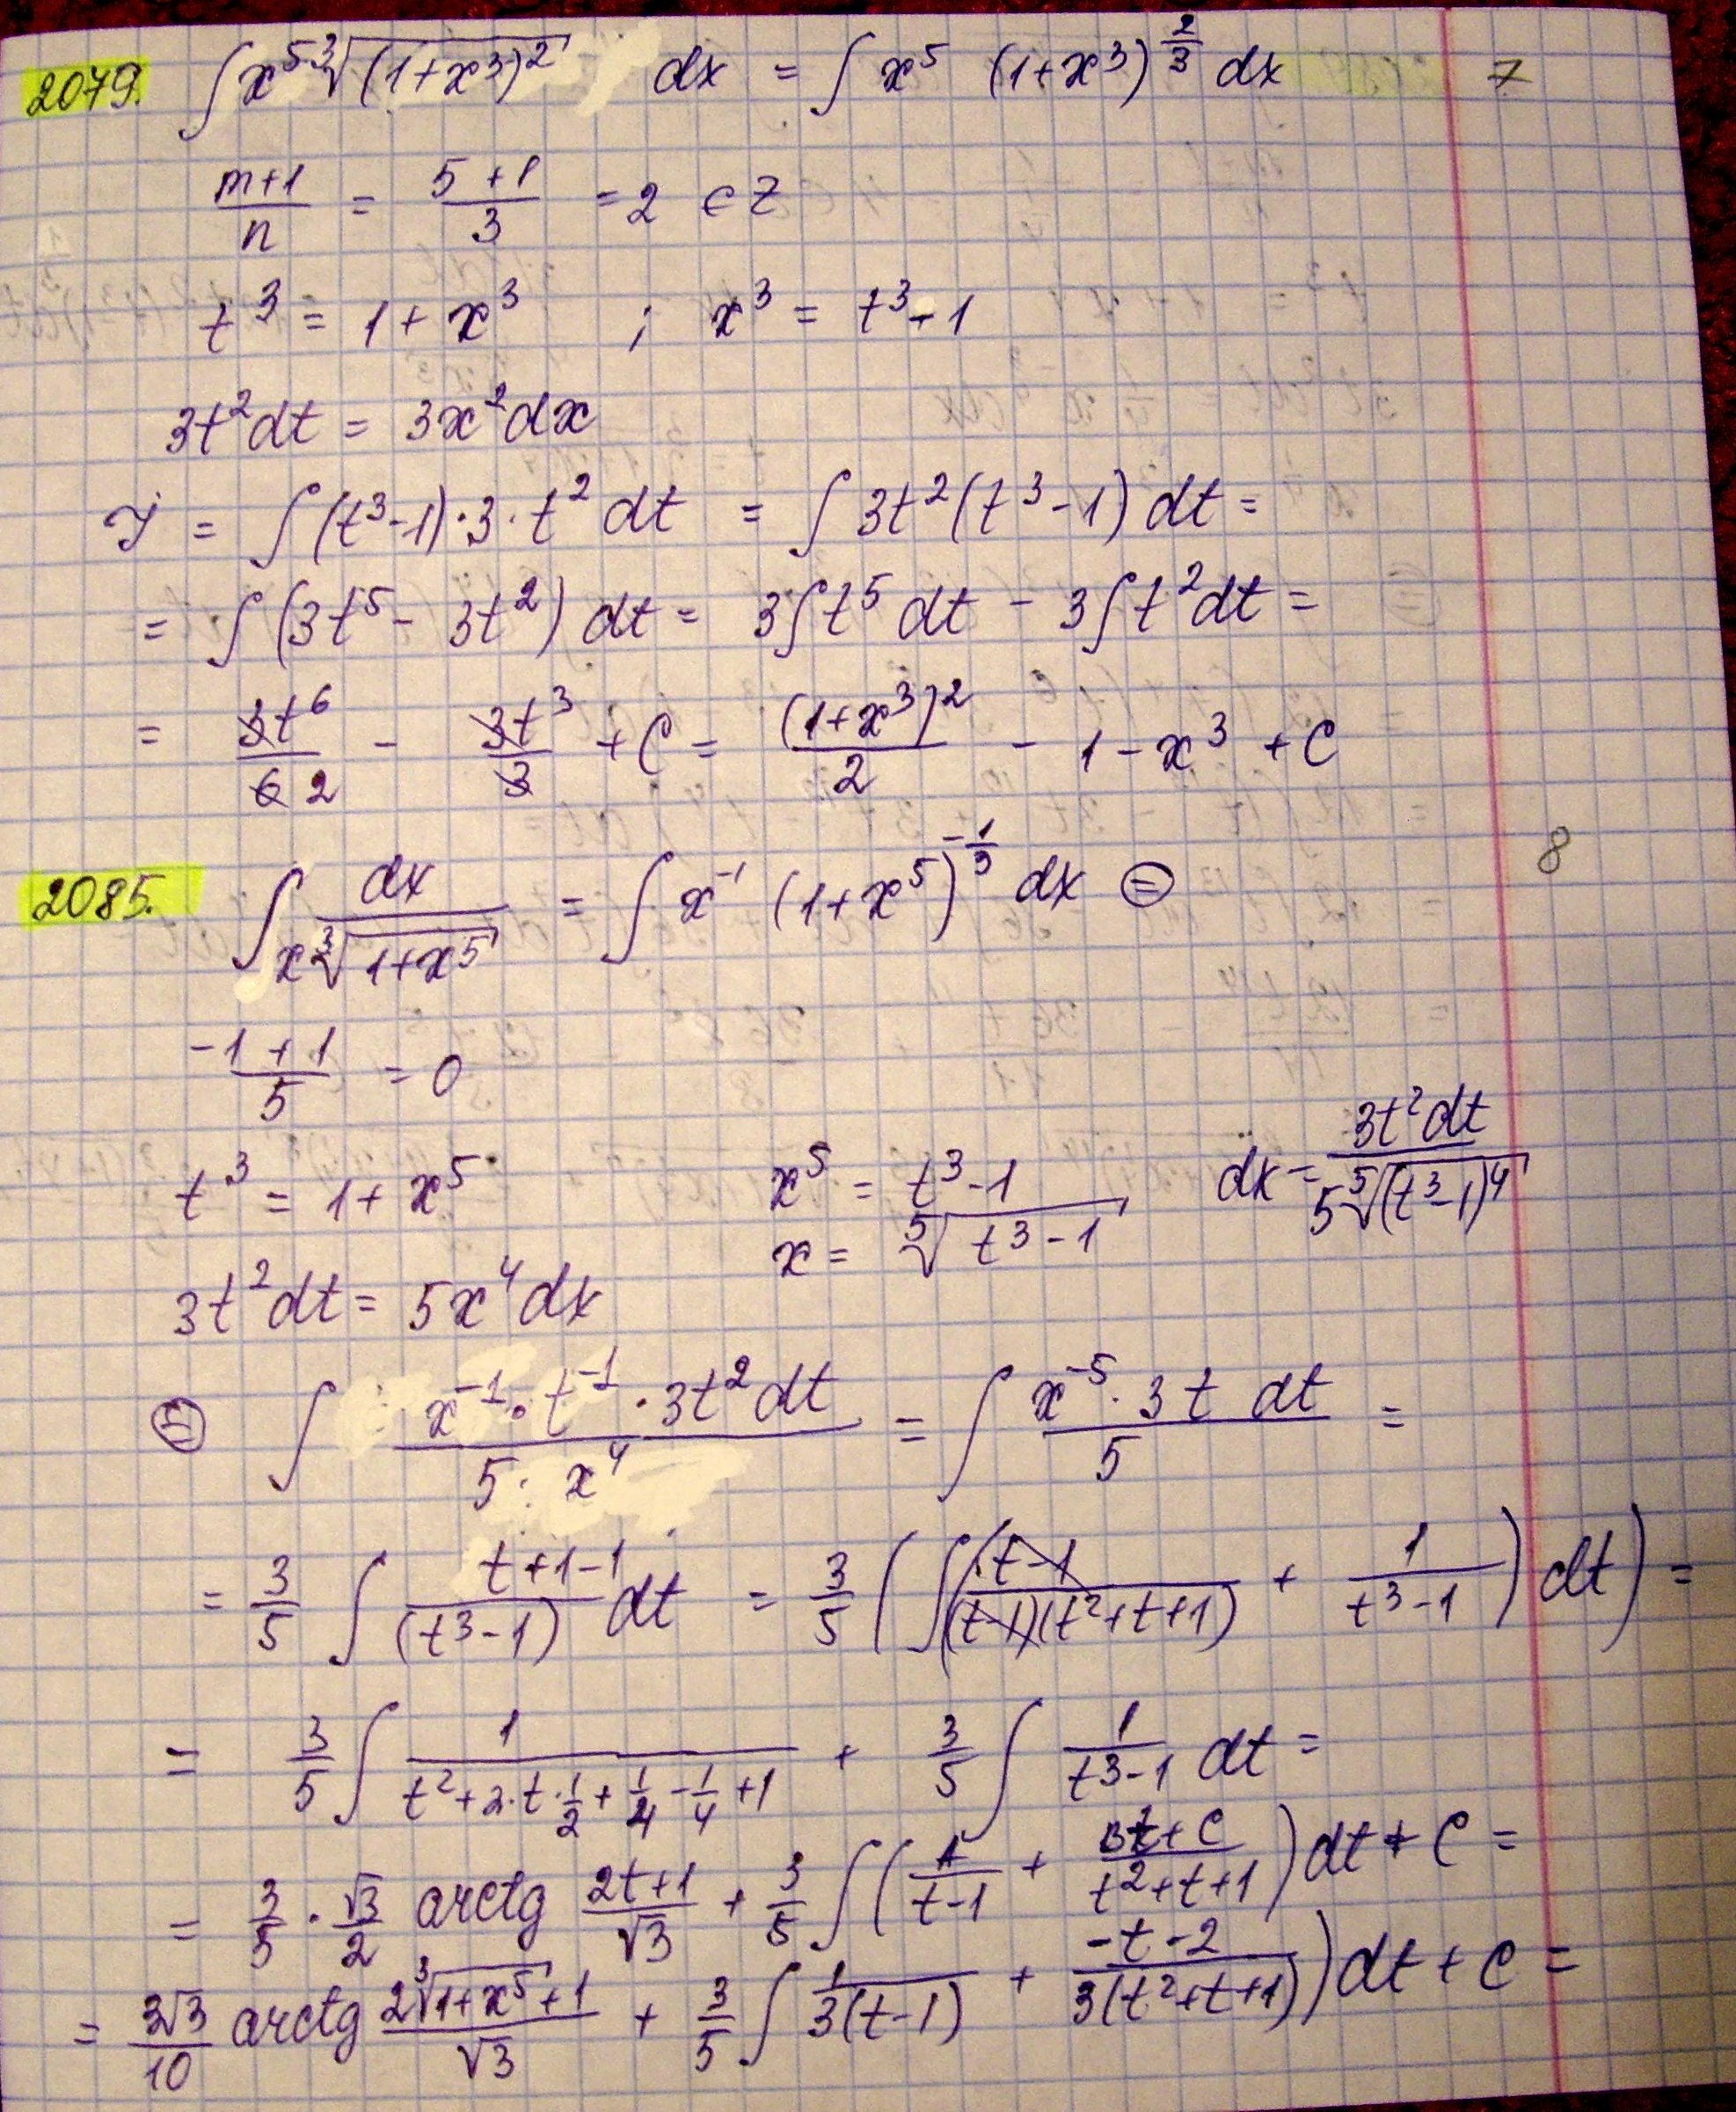 2079. ∫ x⁵ ∛(1+x³)² dx = ∫ x⁵ (1+x³)^(2/3) dx 7
(m+1)/n = (5+1)/3 = 2 ∈ Z
t³ = 1+x³ ; x³ = t³-1
3t²dt = 3x²dx
J = ∫(t³-1)·3·t² dt = ∫ 3t²(t³-1) dt =
= ∫ (3t⁵ - 3t²) dt = 3∫t⁵ dt - 3∫t²dt =
= 3t⁶/6 2 - 3t³/3 + C = (1+x³)²/2 - 1 - x³ + C
2085. ∫ dx/(x∛(1+x⁵)) = ∫ x⁻¹ (1+x⁵)^(-1/3) dx ⊜ 8
(-1+1)/5 = 0
t³ = 1+x⁵ x⁵ = t³-1 dx = 3t²dt/(5 ⁵√(t³-1)⁴)
x = ⁵√(t³-1)
3t²dt = 5x⁴dx
⊜ ∫ (x⁻¹·t⁻¹·3t²dt)/(5·x⁴) = ∫ (x⁻⁵·3t dt)/5 =
= 3/5 ∫ (t+1-1)/(t³-1) dt = 3/5 (∫((t-1)/((t-1)(t²+t+1)) + 1/(t³-1)) dt) =
= 3/5 ∫ 1/(t²+2·t·1/2+1/4-1/4+1) + 3/5 ∫ 1/(t³-1) dt =
= 3/5 · √3/2 arctg (2t+1)/√3 + 3/5 ∫(A/(t-1) + (Bt+C)/(t²+t+1))dt + C =
= 3√3/10 arctg (2∛(1+x⁵)+1)/√3 + 3/5 ∫ 1/(3(t-1)) + (-t-2)/(3(t²+t+1)))dt + C =